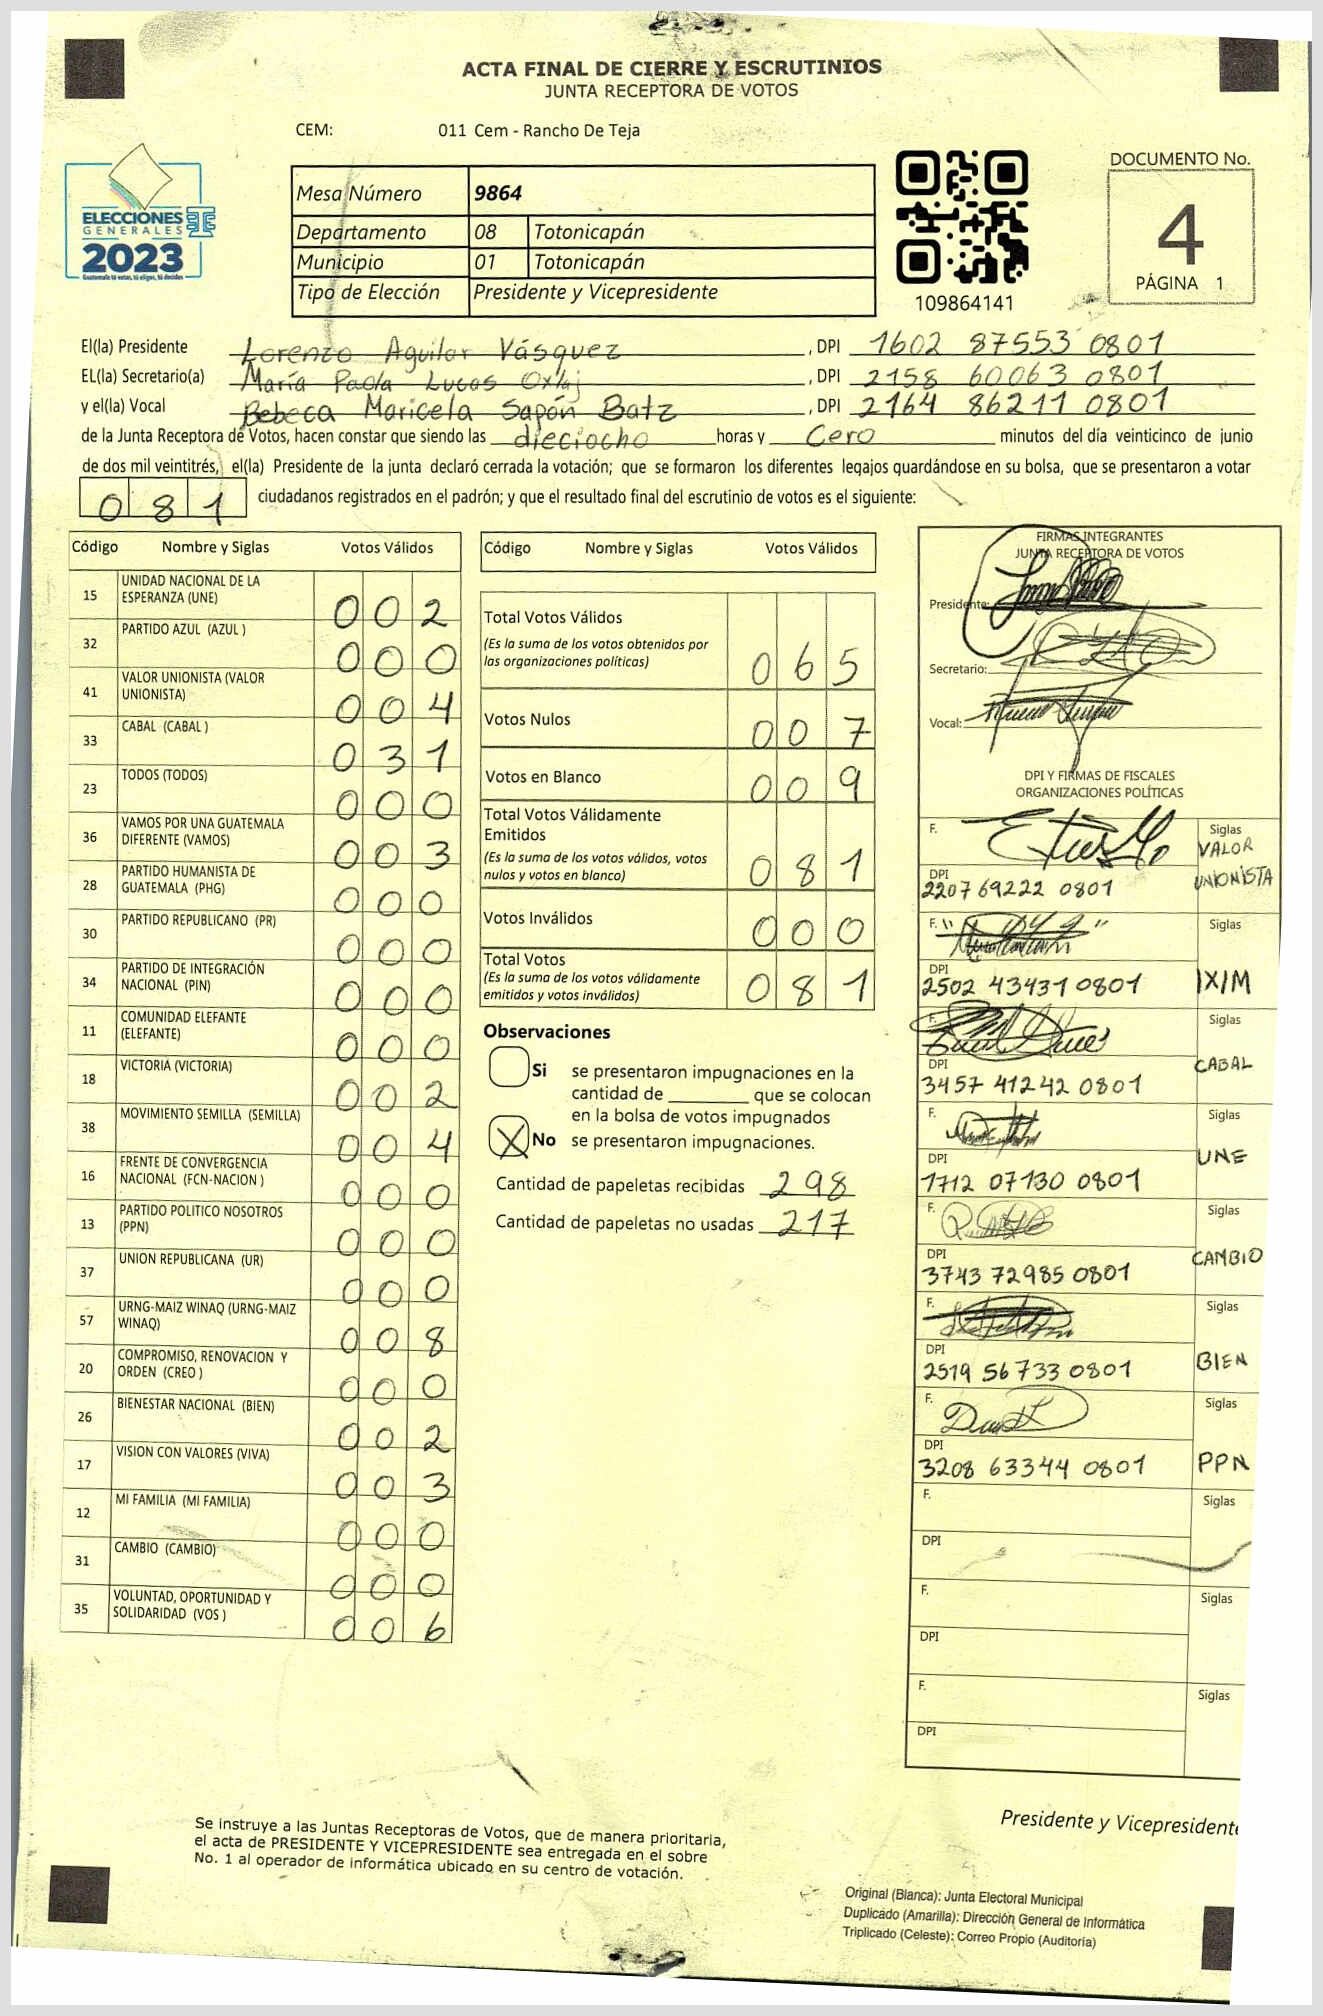 ACTA FINAL DE CIERRE Y ESCRUTINIOS
JUNTA RECEPTORA DE VOTOS
CEM: 011 Cem - Rancho De Teja
ELECCIONES
GENERALES
2023
Guatemala tú votas, tú eliges, tú decides
Mesa Número 9864
Departamento 08 Totonicapán
Municipio 01 Totonicapán
Tipo de Elección Presidente y Vicepresidente
109864141
DOCUMENTO No.
4
PÁGINA 1
El(la) Presidente Lorenzo Aguilar Vásquez , DPI 1602 87553 0801
EL(la) Secretario(a) María Paola Lucas Oxlaj , DPI 2158 60063 0801
y el(la) Vocal Bebeca Maricela Sapón Batz , DPI 2164 86211 0801
de la Junta Receptora de Votos, hacen constar que siendo las dieciocho horas y Cero minutos del día veinticinco de junio
de dos mil veintitrés, el(la) Presidente de la junta declaró cerrada la votación; que se formaron los diferentes legajos guardándose en su bolsa, que se presentaron a votar
081 ciudadanos registrados en el padrón; y que el resultado final del escrutinio de votos es el siguiente:
Código Nombre y Siglas Votos Válidos
15 UNIDAD NACIONAL DE LA ESPERANZA (UNE) 002
32 PARTIDO AZUL (AZUL ) 000
41 VALOR UNIONISTA (VALOR UNIONISTA) 004
33 CABAL (CABAL ) 031
23 TODOS (TODOS) 000
36 VAMOS POR UNA GUATEMALA DIFERENTE (VAMOS) 003
28 PARTIDO HUMANISTA DE GUATEMALA (PHG) 000
30 PARTIDO REPUBLICANO (PR) 000
34 PARTIDO DE INTEGRACIÓN NACIONAL (PIN) 000
11 COMUNIDAD ELEFANTE (ELEFANTE) 000
18 VICTORIA (VICTORIA) 002
38 MOVIMIENTO SEMILLA (SEMILLA) 004
16 FRENTE DE CONVERGENCIA NACIONAL (FCN-NACION ) 000
13 PARTIDO POLITICO NOSOTROS (PPN) 000
37 UNION REPUBLICANA (UR) 000
57 URNG-MAIZ WINAQ (URNG-MAIZ WINAQ) 008
20 COMPROMISO, RENOVACION Y ORDEN (CREO ) 000
26 BIENESTAR NACIONAL (BIEN) 002
17 VISION CON VALORES (VIVA) 003
12 MI FAMILIA (MI FAMILIA) 000
31 CAMBIO (CAMBIO) 000
35 VOLUNTAD, OPORTUNIDAD Y SOLIDARIDAD (VOS ) 006
Código Nombre y Siglas Votos Válidos
Total Votos Válidos
(Es la suma de los votos obtenidos por
las organizaciones políticas) 065
Votos Nulos 007
Votos en Blanco 009
Total Votos Válidamente
Emitidos
(Es la suma de los votos válidos, votos
nulos y votos en blanco) 081
Votos Inválidos 000
Total Votos
(Es la suma de los votos válidamente
emitidos y votos inválidos) 081
Observaciones
Si se presentaron impugnaciones en la
cantidad de ________ que se colocan
en la bolsa de votos impugnados
X No se presentaron impugnaciones.
Cantidad de papeletas recibidas 298
Cantidad de papeletas no usadas 217
FIRMAS INTEGRANTES
JUNTA RECEPTORA DE VOTOS
Presidente:
Secretario:
Vocal:
DPI Y FIRMAS DE FISCALES
ORGANIZACIONES POLÍTICAS
F. Siglas
VALOR
UNIONISTA
DPI
2207 69222 0801
F. Siglas
DPI
2502 43431 0801 IXIM
F. Siglas
DPI CABAL
3457 41242 0801
F. Siglas
DPI UNE
1712 07130 0801
F. Siglas
DPI CAMBIO
3743 72985 0801
F. Siglas
DPI BIEN
2519 56733 0801
F. Siglas
DPI
3208 63344 0801 PPN
F. Siglas
DPI
F. Siglas
DPI
F. Siglas
DPI
Presidente y Vicepresidente
Se instruye a las Juntas Receptoras de Votos, que de manera prioritaria,
el acta de PRESIDENTE Y VICEPRESIDENTE sea entregada en el sobre
No. 1 al operador de informática ubicado en su centro de votación.
Original (Blanca): Junta Electoral Municipal
Duplicado (Amarilla): Dirección General de Informática
Triplicado (Celeste): Correo Propio (Auditoría)